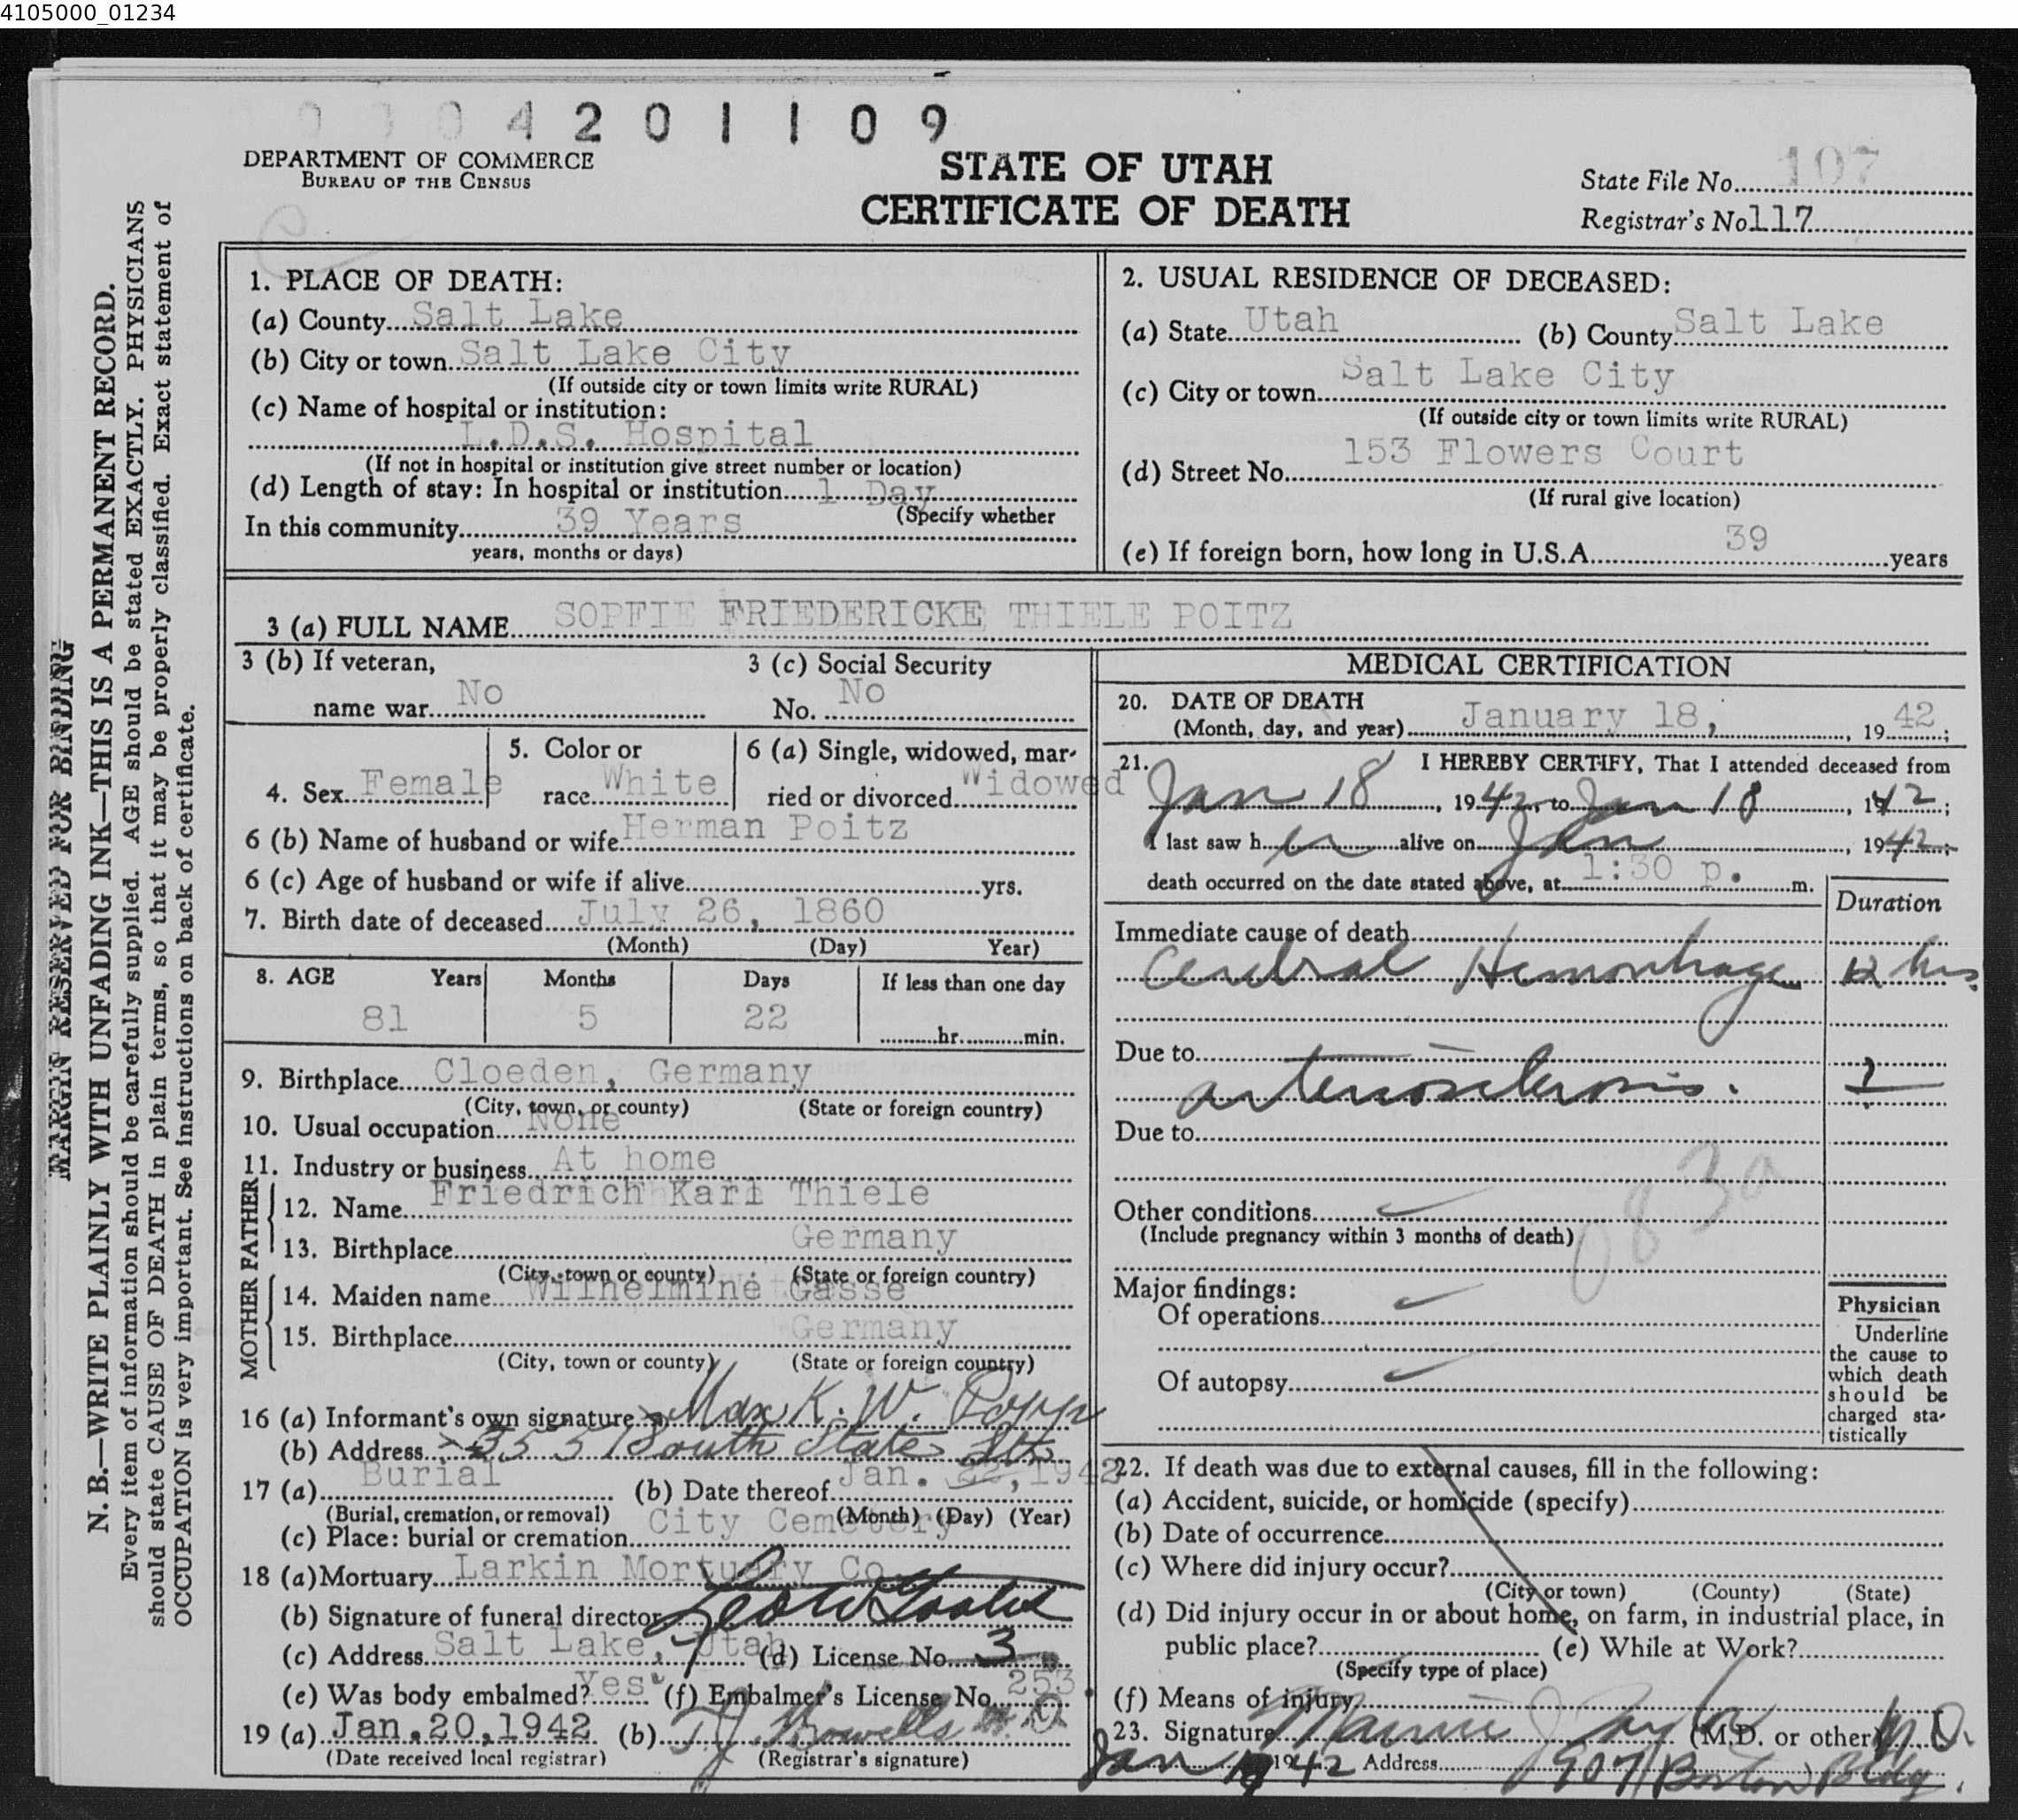 4105000_01234
0004201109
DEPARTMENT OF COMMERCE
BUREAU OF THE CENSUS
STATE OF UTAH
CERTIFICATE OF DEATH
State File No. 107
Registrar's No 117
MARGIN RESERVED FOR BINDING
N. B.—WRITE PLAINLY WITH UNFADING INK—THIS IS A PERMANENT RECORD.
Every item of information should be carefully supplied. AGE should be stated EXACTLY. PHYSICIANS
should state CAUSE OF DEATH in plain terms, so that it may be properly classified. Exact statement of
OCCUPATION is very important. See instructions on back of certificate.
1. PLACE OF DEATH:
(a) County Salt Lake
(b) City or town Salt Lake City
(If outside city or town limits write RURAL)
(c) Name of hospital or institution:
L.D.S. Hospital
(If not in hospital or institution give street number or location)
(d) Length of stay: In hospital or institution 1 Day
(Specify whether
In this community 39 Years
years, months or days)
2. USUAL RESIDENCE OF DECEASED:
(a) State Utah (b) County Salt Lake
(c) City or town Salt Lake City
(If outside city or town limits write RURAL)
(d) Street No. 153 Flowers Court
(If rural give location)
(e) If foreign born, how long in U.S.A. 39 years
3 (a) FULL NAME SOPFIE FRIEDERICKE THIELE POITZ
3 (b) If veteran, name war No
3 (c) Social Security No. No
4. Sex Female
5. Color or race White
6 (a) Single, widowed, married or divorced Widowed
6 (b) Name of husband or wife Herman Poitz
6 (c) Age of husband or wife if alive yrs.
7. Birth date of deceased July 26, 1860
(Month) (Day) Year)
8. AGE Years Months Days If less than one day
81 5 22 hr. min.
9. Birthplace Cloeden, Germany
(City, town, or county) (State or foreign country)
10. Usual occupation None
11. Industry or business At home
FATHER
12. Name Friedrich Karl Thiele
13. Birthplace Germany
(City, town or county) (State or foreign country)
MOTHER
14. Maiden name Wilhelmine Gasse
15. Birthplace Germany
(City, town or county) (State or foreign country)
16 (a) Informant's own signature Max K. W.
(b) Address South State
17 (a) Burial (b) Date thereof Jan. 22, 1942
(Burial, cremation, or removal) (Month) (Day) (Year)
(c) Place: burial or cremation City Cemetery
18 (a) Mortuary Larkin Mortuary Co.
(b) Signature of funeral director
(c) Address Salt Lake, Utah (d) License No. 3
(e) Was body embalmed? Yes (f) Embalmer's License No. 253
19 (a) Jan. 20, 1942 (b) T. J. Howells M.D.
(Date received local registrar) (Registrar's signature)
MEDICAL CERTIFICATION
20. DATE OF DEATH
(Month, day, and year) January 18, 1942;
21. I HEREBY CERTIFY, That I attended deceased from
Jan 18, 1942, to Jan 18, 1942;
I last saw her alive on Jan, 1942;
death occurred on the date stated above, at 1:30 p. m.
Duration
Immediate cause of death
Cerebral Hemorrhage 12 hrs.
Due to
arteriosclerosis. ?
Due to
083a
Other conditions
(Include pregnancy within 3 months of death)
Major findings:
Of operations
Of autopsy
Physician
Underline
the cause to
which death
should be
charged sta-
tistically
22. If death was due to external causes, fill in the following:
(a) Accident, suicide, or homicide (specify)
(b) Date of occurrence
(c) Where did injury occur?
(City or town) (County) (State)
(d) Did injury occur in or about home, on farm, in industrial place, in
public place? (e) While at Work?
(Specify type of place)
(f) Means of injury
23. Signature J Taylor (M.D. or other) M.D.
Jan 19 1942 Address 907 Boston Bldg.